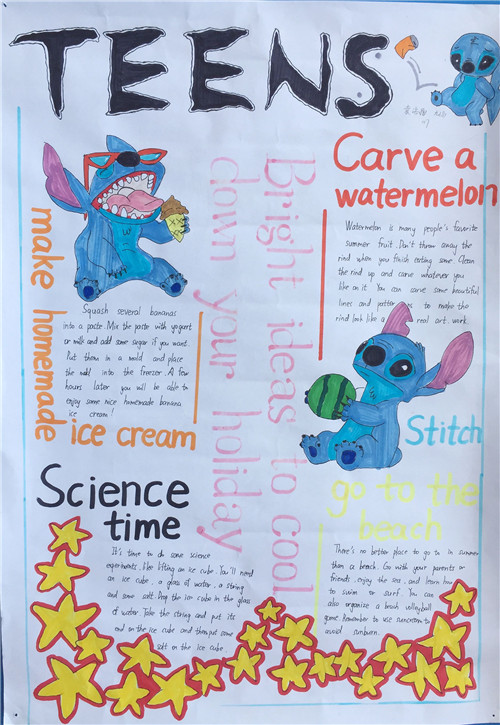 TEENS
Bright ideas to cool
down your holiday
make homemade
ice cream
Squash several bananas
into a paste. Mix the paste with yogurt
or milk and add some sugar if you want.
Put them in a mold and place
the mold into the freezer. A few
hours later you will be able to
enjoy some nice homemade banana
ice cream!
Carve a
watermelon
Watermelon is many people's favorite
summer fruit. Don't throw away the
rind when you finish eating some. Clean
the rind up and carve whatever you
like on it. You can carve some beautiful
lines and to make the
rind look like a real art work.
Stitch
Science
time
It's time to do some science
experiments, like lifting an ice cube. You'll need
an ice cube, a glass of water, a string
and some salt. Put the ice cube in the glass
of water. Take the string and put its
end on the ice cube and then put some
salt on the ice cube.
go to the
beach
There's no better place to go to in summer
than a beach. Go with your parents or
friends, enjoy the sea, and learn how
to swim or surf. You can
also organize a beach volleyball
game. Remember to use suncream to
avoid sunburn.